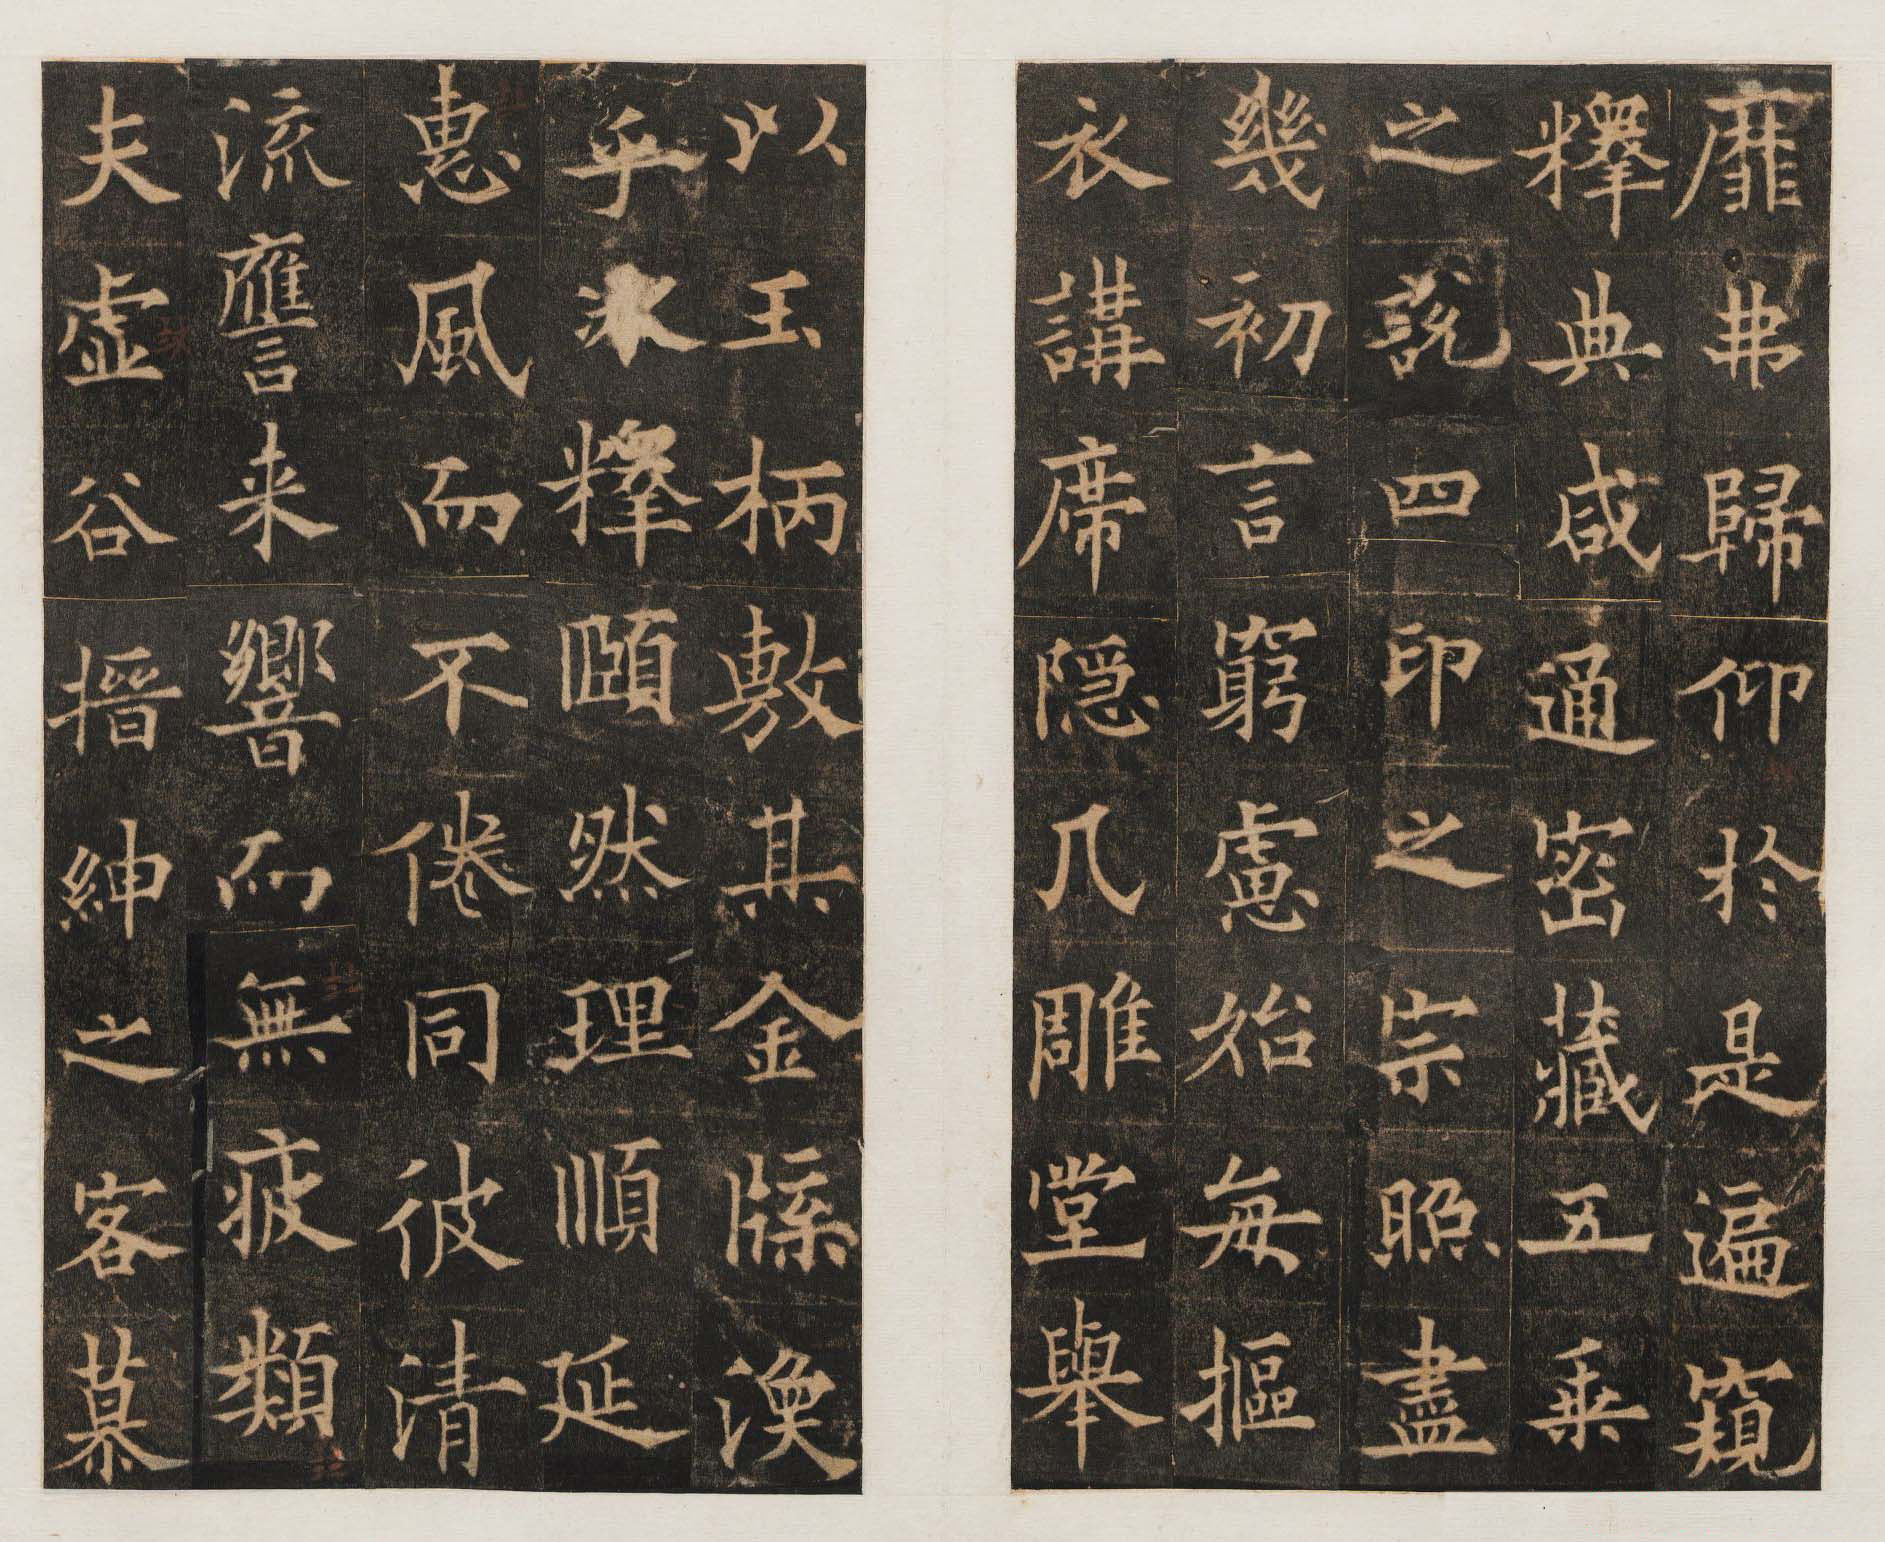 靡弗歸仰於是遍窺
釋典咸通密藏五乘
之說四印之宗照盡
幾初言窮慮始每摳
衣講席隱几雕堂舉
以玉柄敷其金牒渙
乎冰釋頤然理順延
惠風而不倦同彼清
流譍来響而無疲類
夫虛谷搢紳之客慕